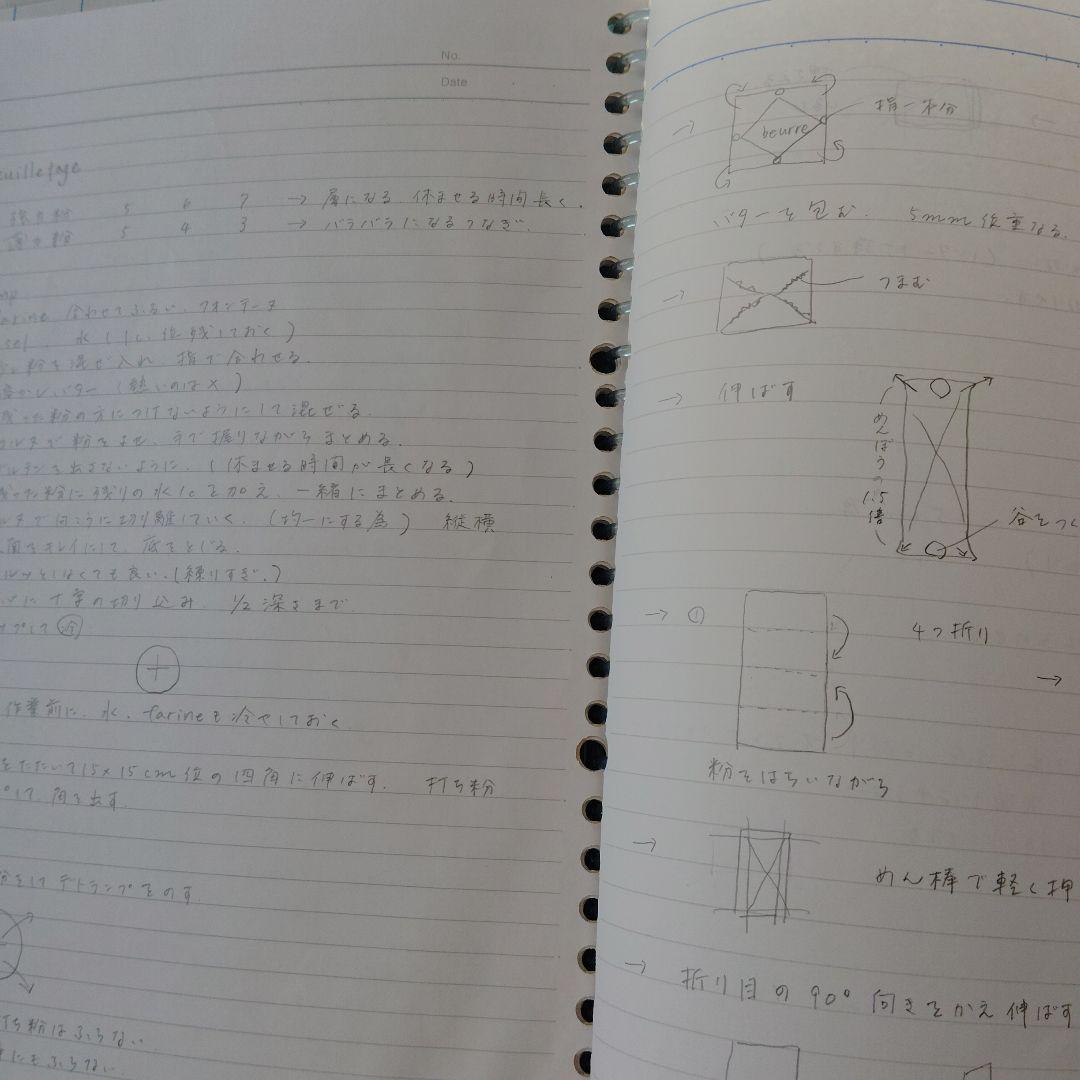 No.
Date
強力粉 5 6 7 → 層になる 休ませる時間長く.
薄力粉 5 4 3 → バラバラになるつなぎ.
farine 合わせてふるい、フォンテーヌ
sel 水 (1c. 位残しておく)
粉を混ぜ入れ 指で合わせる.
溶かしバター (熱いのは×)
残った粉の方につけないようにして混ぜる.
で粉をよせ、手で握りながらまとめる.
グルテンを出さないように. (休ませる時間が長くなる)
残った粉に残りの水1cを加え、一緒にまとめる.
で向こうに切り離していく. (均一にする為) 縦横
面をキレイにして、底をとじる.
しなくても良い.(練りすぎ.)
に十字の切り込み. 1/2 深さまで
して 冷
作業前に、水、farineも冷やしておく
をたたいて15×15cm位の四角に伸ばす. 打ち粉
して、角を出す.
デトランプをのす.
打ち粉はふらない.
にもふらない.
→ beurre 指一本分
バターを包む. 5mm位重なる.
→ つまむ
→ 伸ばす
めんぼうの1.5倍
谷をつく
→ ① 4つ折り →
粉をはらいながら
→ めん棒で軽く押
→ 折り目の90°向きをかえ伸ばす